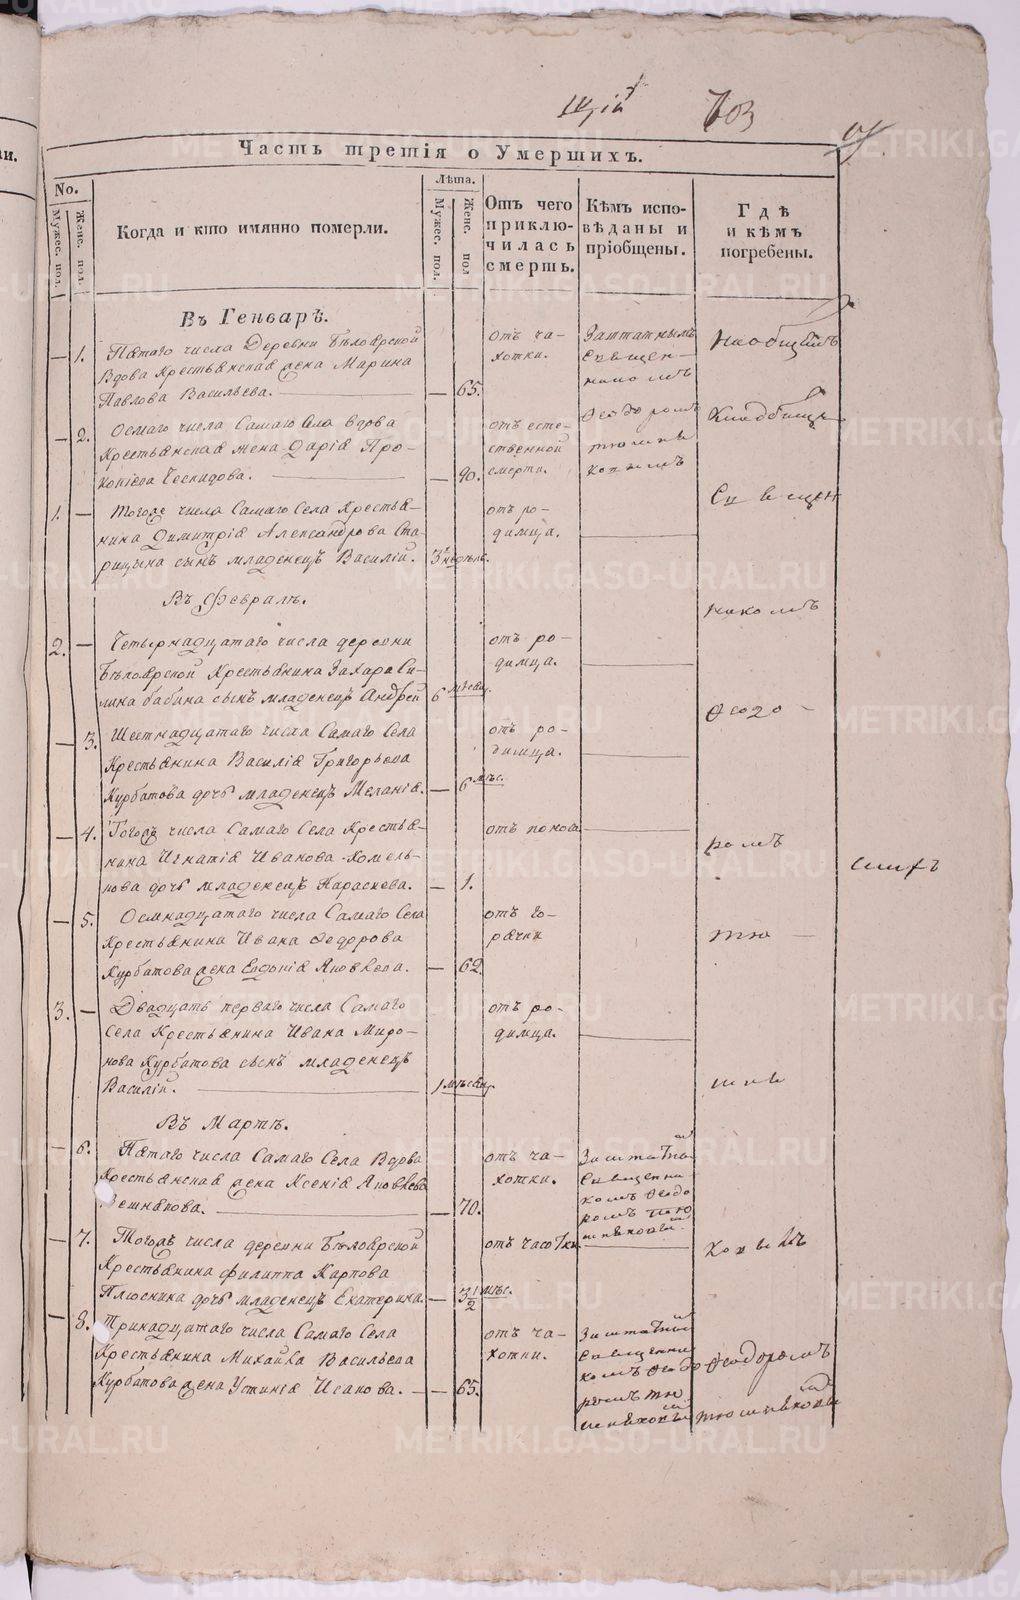 703
Часть третія о Умершихъ.
No.
Мужес. пол.
Женс. пол.
Когда и кто имянно померли.
Лѣта.
Мужес. пол.
Женс. пол
Отъ чего приклю-чилась смерть.
Кѣмъ испо-вѣданы и пріобщены.
Гдѣ и кѣмъ погребены.
Въ Генварѣ.
— 1. Пятаго числа Деревни Бѣлоярской
Вдова Крестьянская жена Марина
Павлова Васильева. — 65.
отъ ча-
хотки.
Заштатнымъ
Священ-
никомъ
На общемъ
— 2. Осмаго числа Самаго Села вдова
Крестьянская жена Дарія Про-
копіева Чеснидова. — 90.
отъ есте-
ственной
смерти.
Ѳеодоромъ
Кладбищѣ
1. — Тогоже числа Самаго Села Крестья-
нина Димитрія Александрова Ста-
рицына сынъ младенецъ Василій. 3 недѣль.
отъ ро-
димца.
Священ
никомъ
Въ Февралѣ.
2. — Четырнадцатаго числа деревни
Бѣлоярской Крестьянина Захара Си-
лина бабина сынъ младенецъ Андрей 6 мѣсяц.
отъ ро-
димца.
Ѳеодо-
— 3. Шестнадцатаго числа Самаго Села
Крестьянина Василія Григорьева
Курбатова дочь младенецъ Меланія. — 6 мѣс.
отъ ро-
димца.
— 4. Тогожъ числа Самаго Села Крестья-
нина Игнатія Иванова Хомель-
нова дочь младенецъ Параскева. — 1.
отъ поноса
ромъ
— 5. Осмнадцатаго числа Самаго Села
Крестьянина Ивана Федорова
Курбатова жена Евдокія Яковлева. — 62.
отъ го-
рячки
тю —
3. — Двадцать перваго числа Самаго
Села Крестьянина Ивана Миро-
нова Курбатова сынъ младенецъ
Василій. 1 мѣсяц.
отъ ро-
димца.
Въ Мартѣ.
— 6. Пятаго числа Самаго Села Вдова
Крестьянская жена Ксенія Яковлева
Вешнякова. — 70.
отъ ча-
хотки.
Заштатны
Священни
комъ Ѳеодо
ромъ Тю
— 7. Тогожъ числа деревни Бѣлоярской
Крестьянина Филиппа Карпова
Плюснина дочь младенецъ Екатерина. — 3 1/2 мѣс.
отъ чесотки.
— 8. Тринадцатаго числа Самаго Села
Крестьянина Михайла Васильева
Курбатова жена Устинія Исакова. — 65.
отъ ча-
хотки.
Заштатным
Священни
комъ Ѳеодо
ромъ тю
Ѳеодоромъ
METRIKI.GASO-URAL.RU